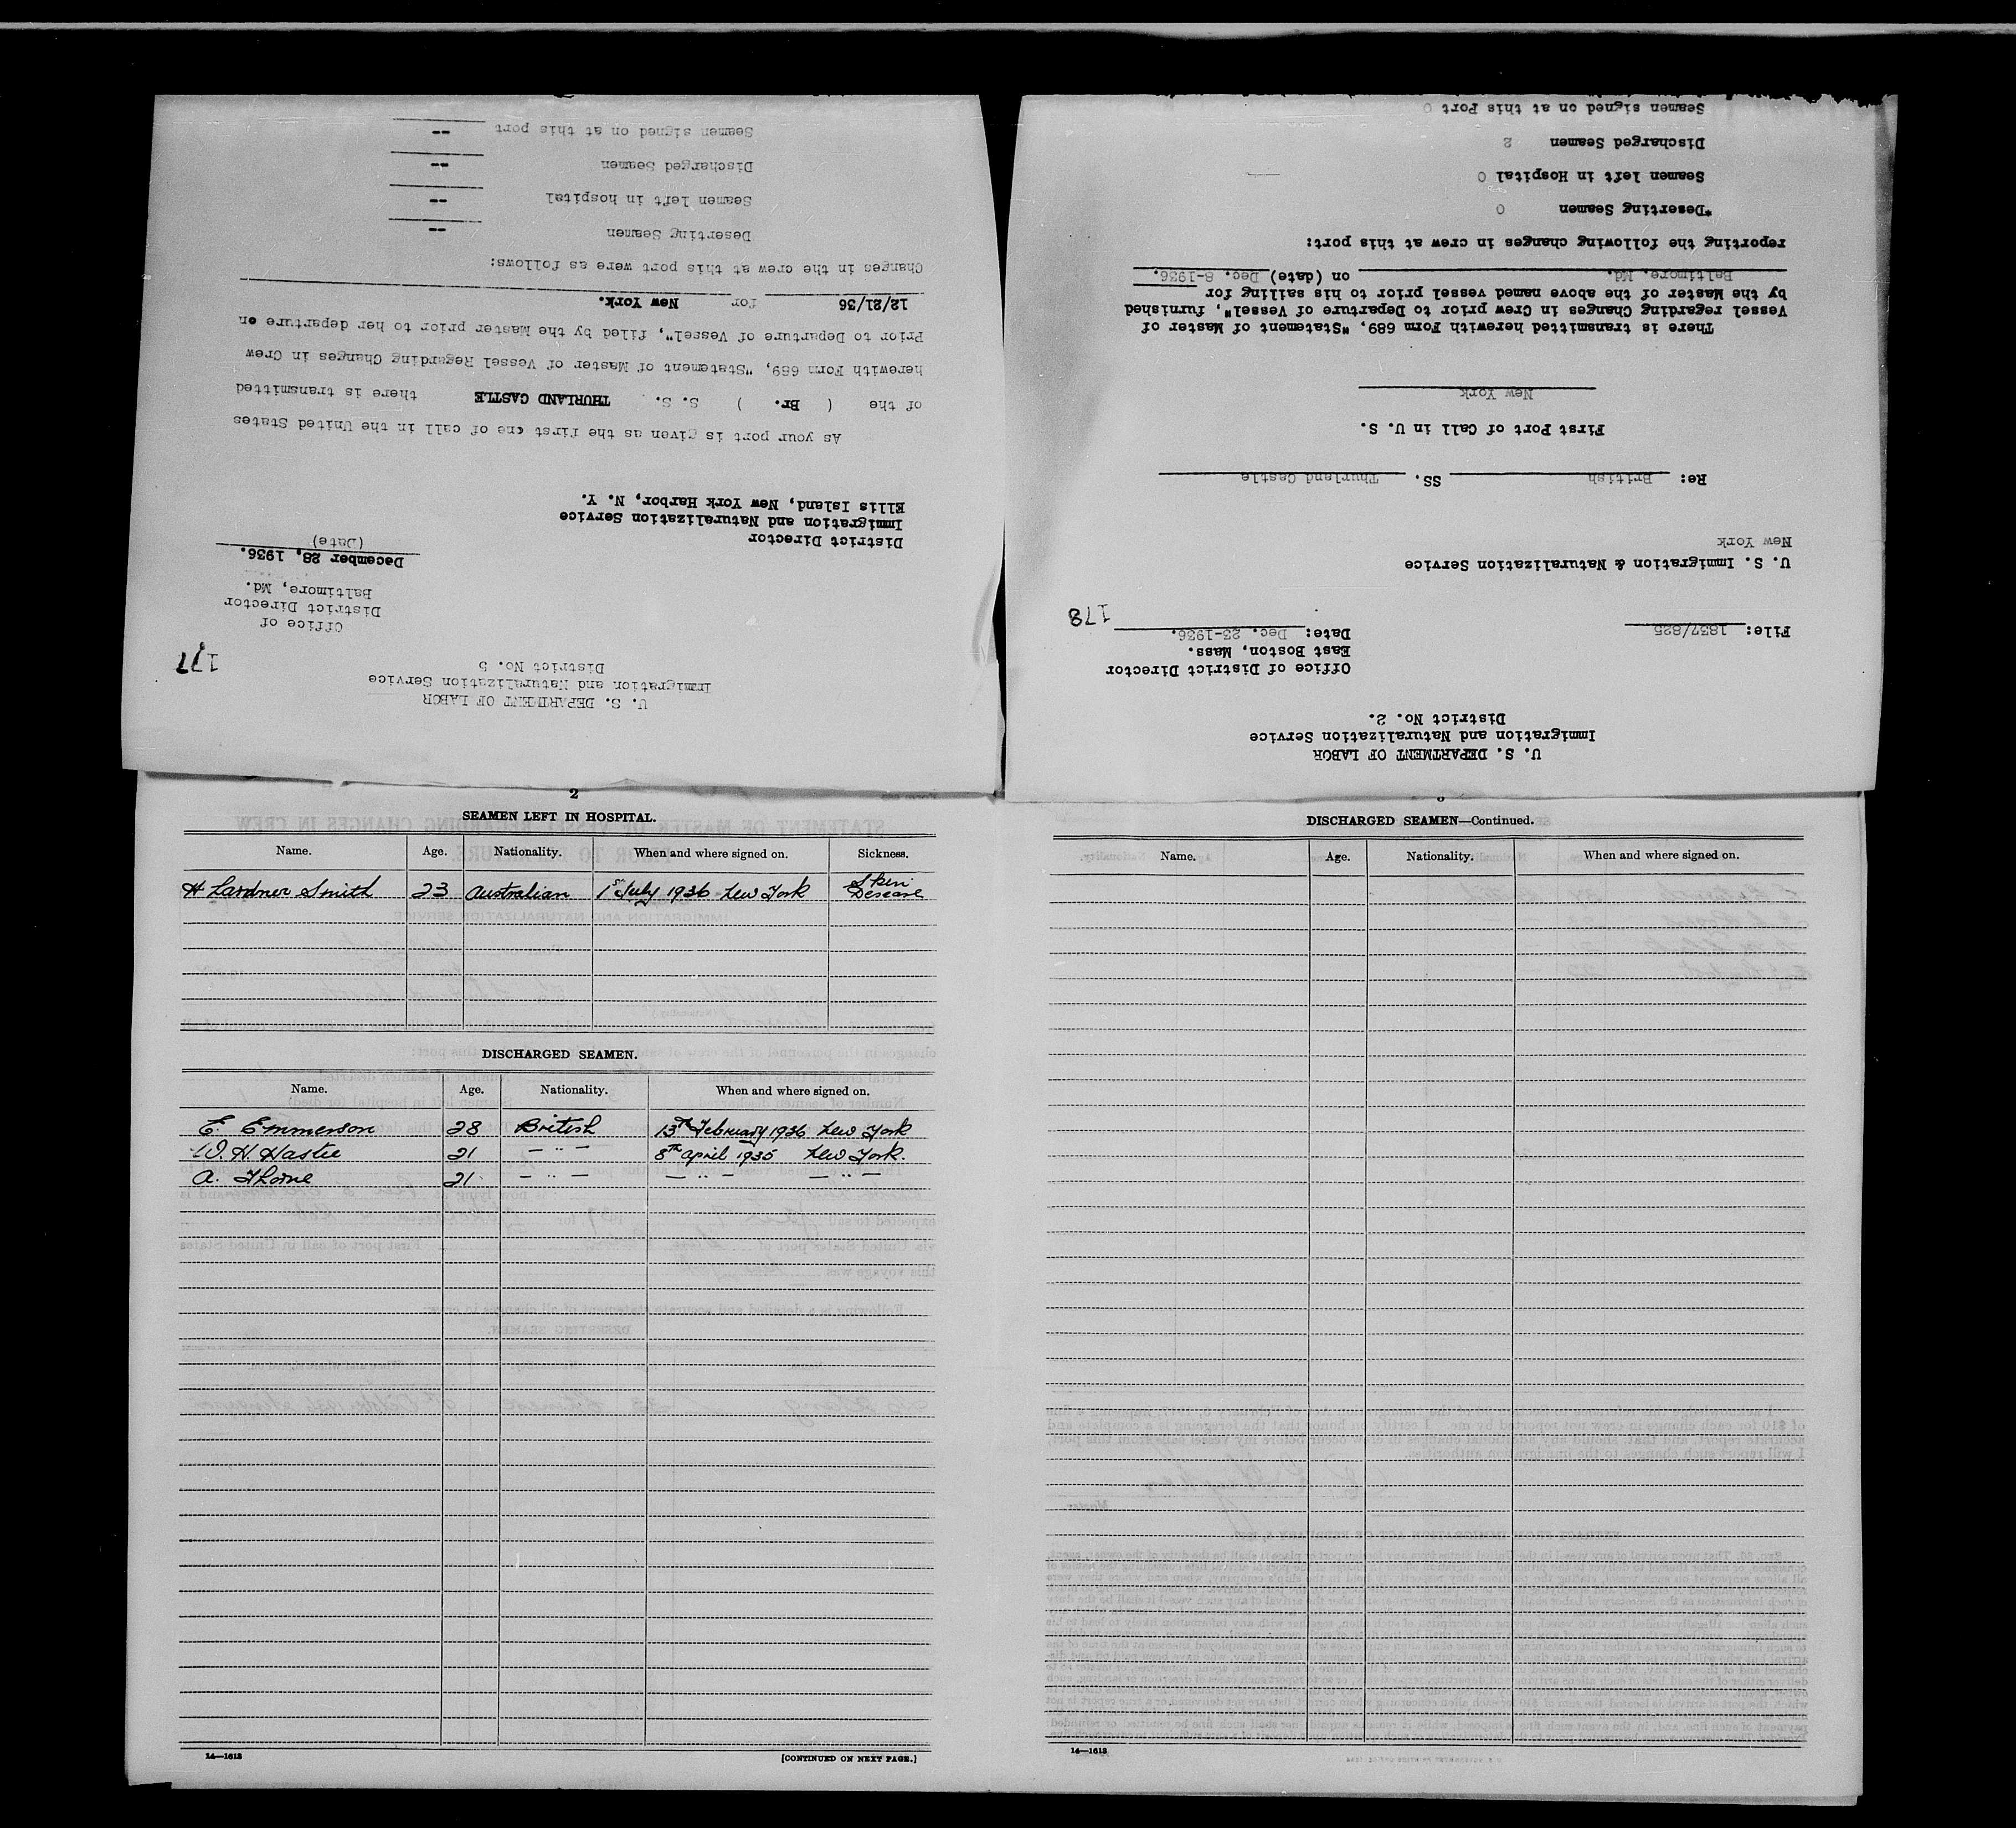 U. S. DEPARTMENT OF LABOR
Immigration and Naturalization Service
District No. 5
177
Office of
District Director
Baltimore, Md.
December 28, 1936.
(Date)
District Director
Immigration and Naturalization Service
Ellis Island, New York Harbor, N. Y.
As your port is given as the first one of call in the United States
of the ( Br. ) S. S. THURLAND CASTLE there is transmitted
herewith Form 689, "Statement of Master of Vessel Regarding Changes in Crew
Prior to Departure of Vessel", filed by the Master prior to her departure on
12/21/36 for New York.
Changes in the crew at this port were as follows:
Deserting Seamen --
Seamen left in hospital --
Discharged Seamen --
Seamen signed on at this port --
U. S. DEPARTMENT OF LABOR
Immigration and Naturalization Service
District No. 2.
Office of District Director
East Boston, Mass.
File: 1837/825 Date: Dec. 23-1936.
178
U. S. Immigration & Naturalization Service
New York
Re: British SS. Thurland Castle
First Port of Call in U. S.
New York
There is transmitted herewith Form 689, "Statement of Master of
Vessel regarding Changes in Crew prior to Departure of Vessel", furnished
by the Master of the above named vessel prior to his sailing for
Baltimore, Md. on (date) Dec. 8-1936.
reporting the following changes in crew at this port:
*Deserting Seamen 0
Seamen left in Hospital 0
Discharged Seamen 2
Seamen signed on at this Port 0
2
SEAMEN LEFT IN HOSPITAL.
Name. Age. Nationality. When and where signed on. Sickness.
H Lardner Smith 23 Australian 1st July 1936 New York Skin Desease
DISCHARGED SEAMEN.
Name. Age. Nationality. When and where signed on.
E. Emmerson 28 British 13th February 1936 New York
W. H. Hastie 21 — " — 8th April 1935 New York.
A. Thorne 21 — " — — " — — " —
14—1613 [CONTINUED ON NEXT PAGE.]
DISCHARGED SEAMEN—Continued.
Name. Age. Nationality. When and where signed on.
14—1613